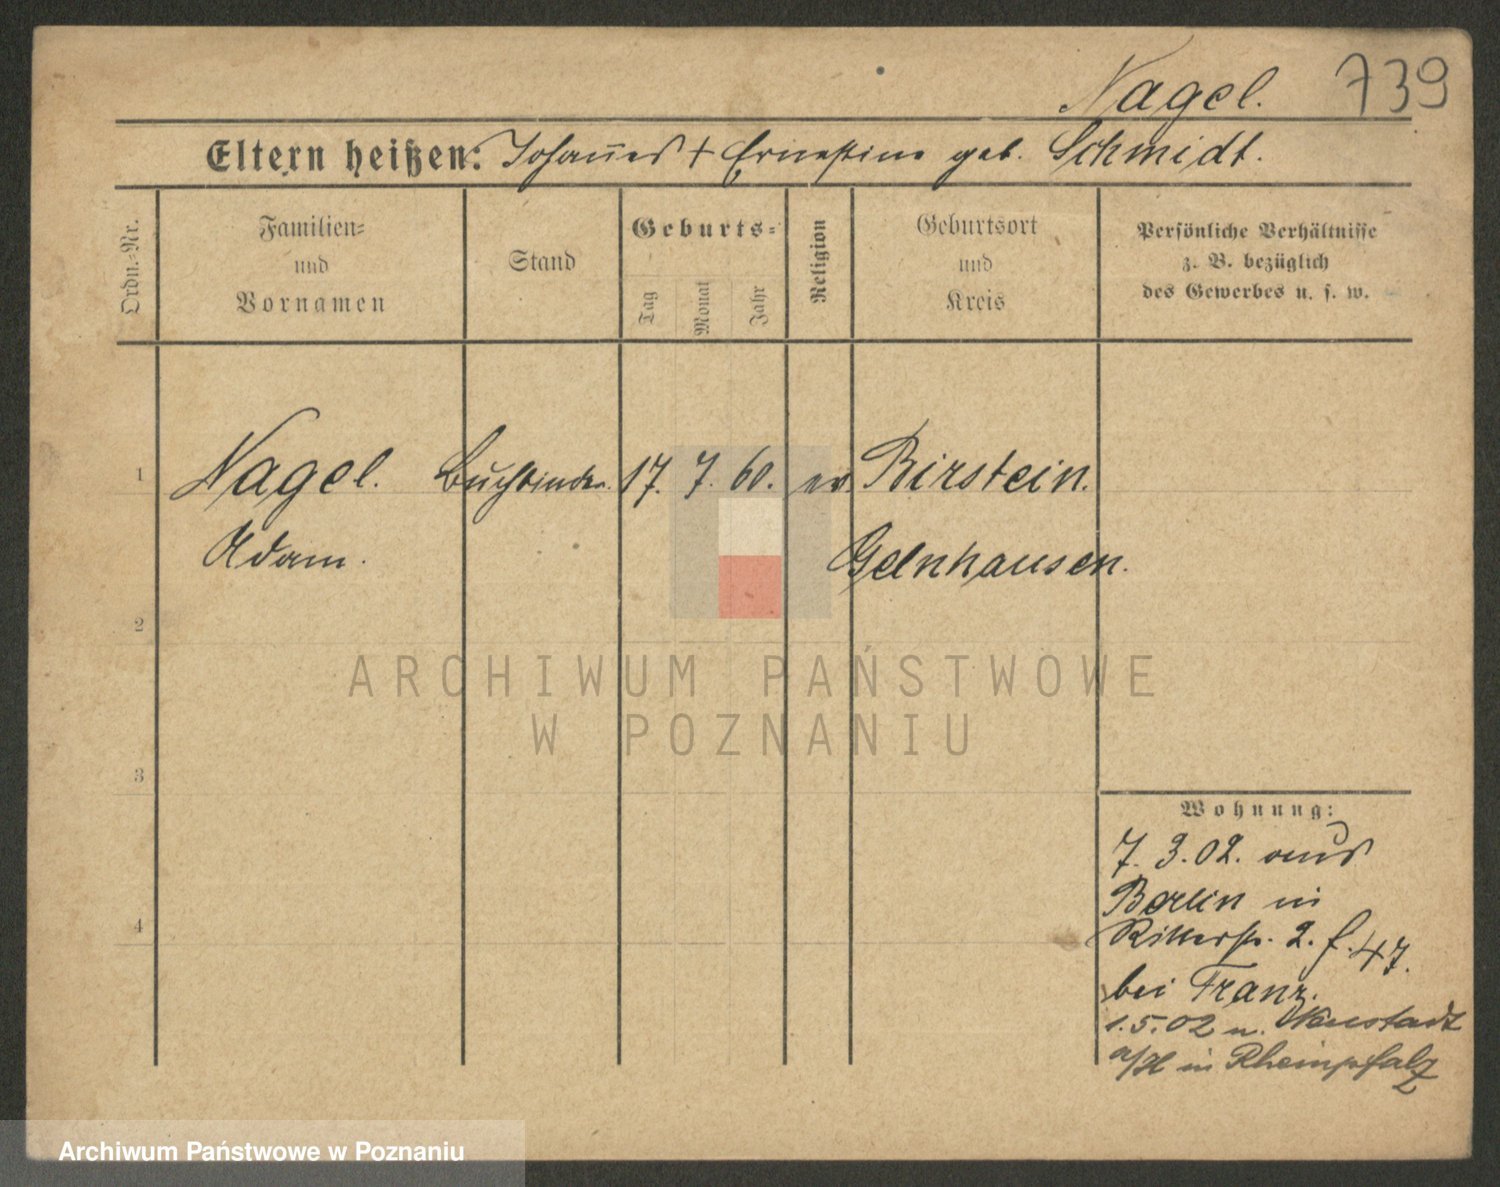 Nagel. 739
Eltern heißen: Johannes + Ernestine geb. Schmidt.
Ordn.-Nr.
Familien-
und
Vornamen
Stand
Geburts-
Tag
Monat
Jahr
Religion
Geburtsort
und
Kreis
Persönliche Verhältnisse
z. B. bezüglich
des Gewerbes u. s. w.
1 Nagel. Buchbinder. 17. 7. 60. ev. Birstein.
Adam. Gelnhausen.
2
3
4
Wohnung:
7. 3. 02. aus
Berlin in
Ritterstr. 2. f. 47.
bei Franz.
1. 5. 02 n. Neustadt
a/H in Rheinpfalz
ARCHIWUM PAŃSTWOWE
W POZNANIU
Archiwum Państwowe w Poznaniu